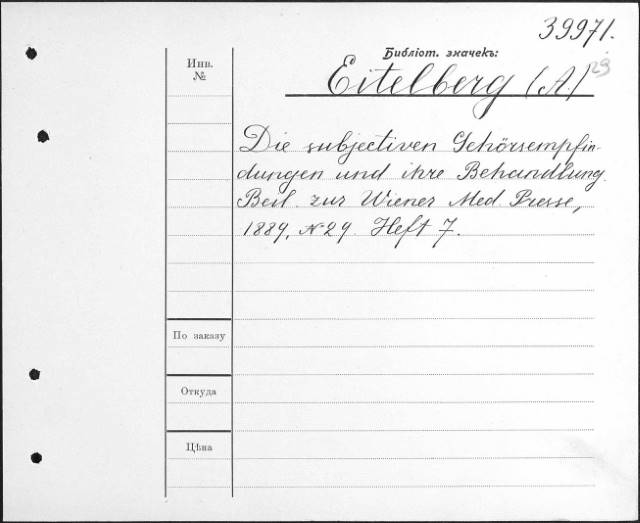 39971.
Библіот. значекъ:
Инв.
№
Eitelberg (A.) 29
Die subjectiven Gehörsempfin-
dungen und ihre Behandlung.
Beil. zur Wiener Med. Presse,
1889, № 29. Heft 7.
По заказу
Откуда
Цѣна